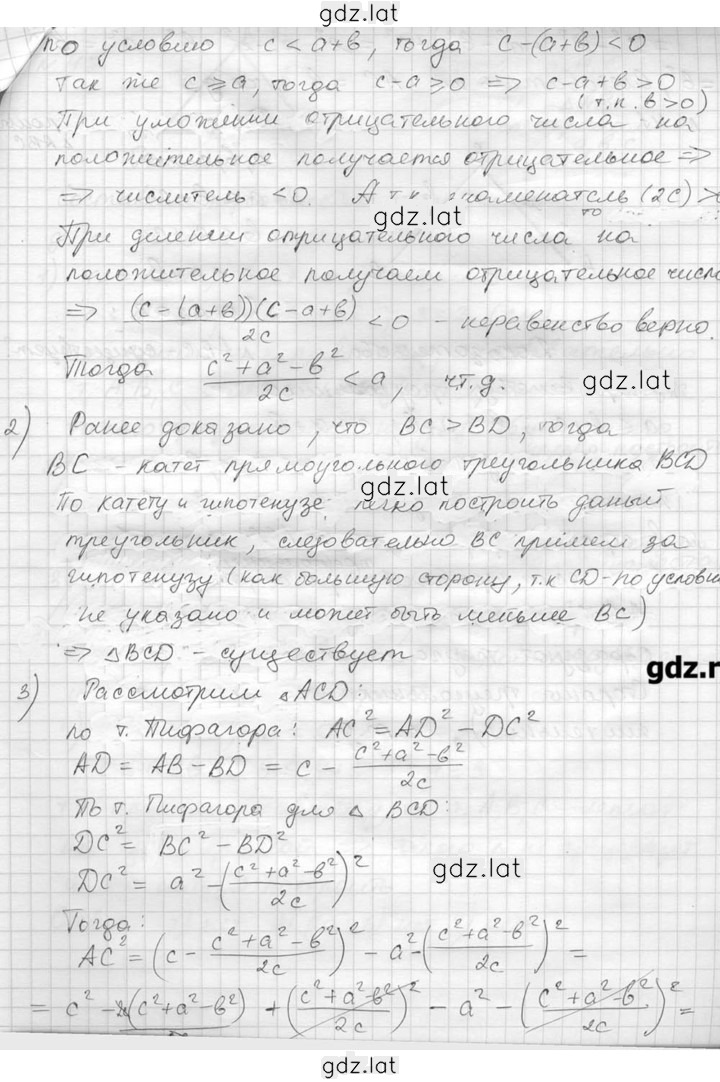 gdz.lat
по условию c < a+в, тогда c-(a+в) < 0
Так же c ⩾ a, тогда c-a ⩾ 0 => c-a+в > 0
(т.к. в>0)
При умножении отрицательного числа на
положительное получается отрицательное =>
=> числитель < 0. А т.к. знаменатель (2c) >
gdz.lat
то
При делении отрицательного числа на
положительное получаем отрицательное число
=> (c-(a+в))(c-a+в) / 2c < 0 - неравенство верно.
Тогда c²+a²-в² / 2c < a, ч.т.д.
gdz.lat
2) Ранее доказано, что BC > BD, тогда
BC - катет прямоугольного треугольника BCD
gdz.lat
По катету и гипотенузе легко построить даный
треугольник, следовательно BC примем за
гипотенузу (как большую сторону, т.к CD-по услови
не указано и может быть меньше BC)
=> △BCD - существует
gdz.r
3) Рассмотрим △ACD:
по т. Пифагора: AC² = AD² - DC²
AD = AB - BD = c - c²+a²-в² / 2c
По т. Пифагора для △ BCD:
DC² = BC² - BD²
DC² = a² - (c²+a²-в² / 2c)²
gdz.lat
Тогда:
AC² = (c - c²+a²-в² / 2c)² - a² - (c²+a²-в² / 2c)² =
= c² - 2c(c²+a²-в²) / 2c + (c²+a²-в² / 2c)² - a² - (c²+a²-в² / 2c)² =
gdz.lat